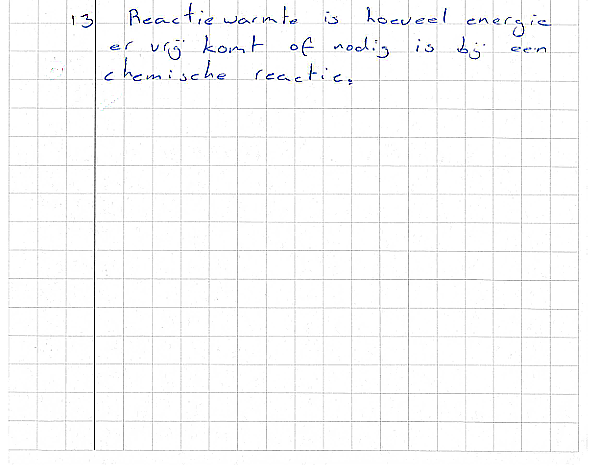 13 Reactiewarmte is hoeveel energie
er vrij komt of nodig is bij een
chemische reactie.